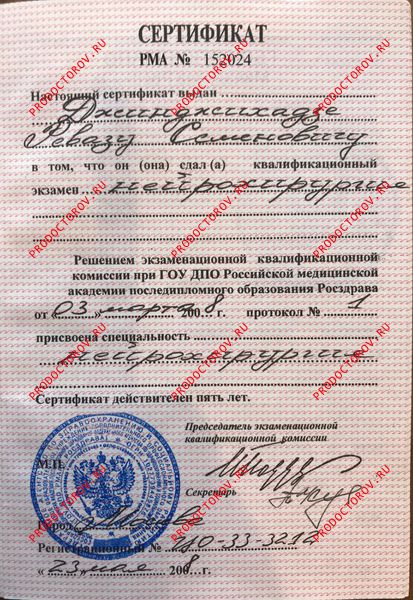 СЕРТИФИКАТ
РМА № 152024
Настоящий сертификат выдан
Джинджихадзе
Ревазу Семеновичу
в том, что он (она) сдал (а) квалификационный
экзамен нейрохирургия
Решением экзаменационной квалификационной
комиссии при ГОУ ДПО Российской медицинской
академии последипломного образования Росздрава
от «03» марта 2008 г. протокол № 1
присвоена специальность
нейрохирургия
Сертификат действителен пять лет.
Председатель экзаменационной
квалификационной комиссии
М.П.
Секретарь
Город Москва
Регистрационный №
«23» мая 2008 г.
PRODOCTOROV.RU